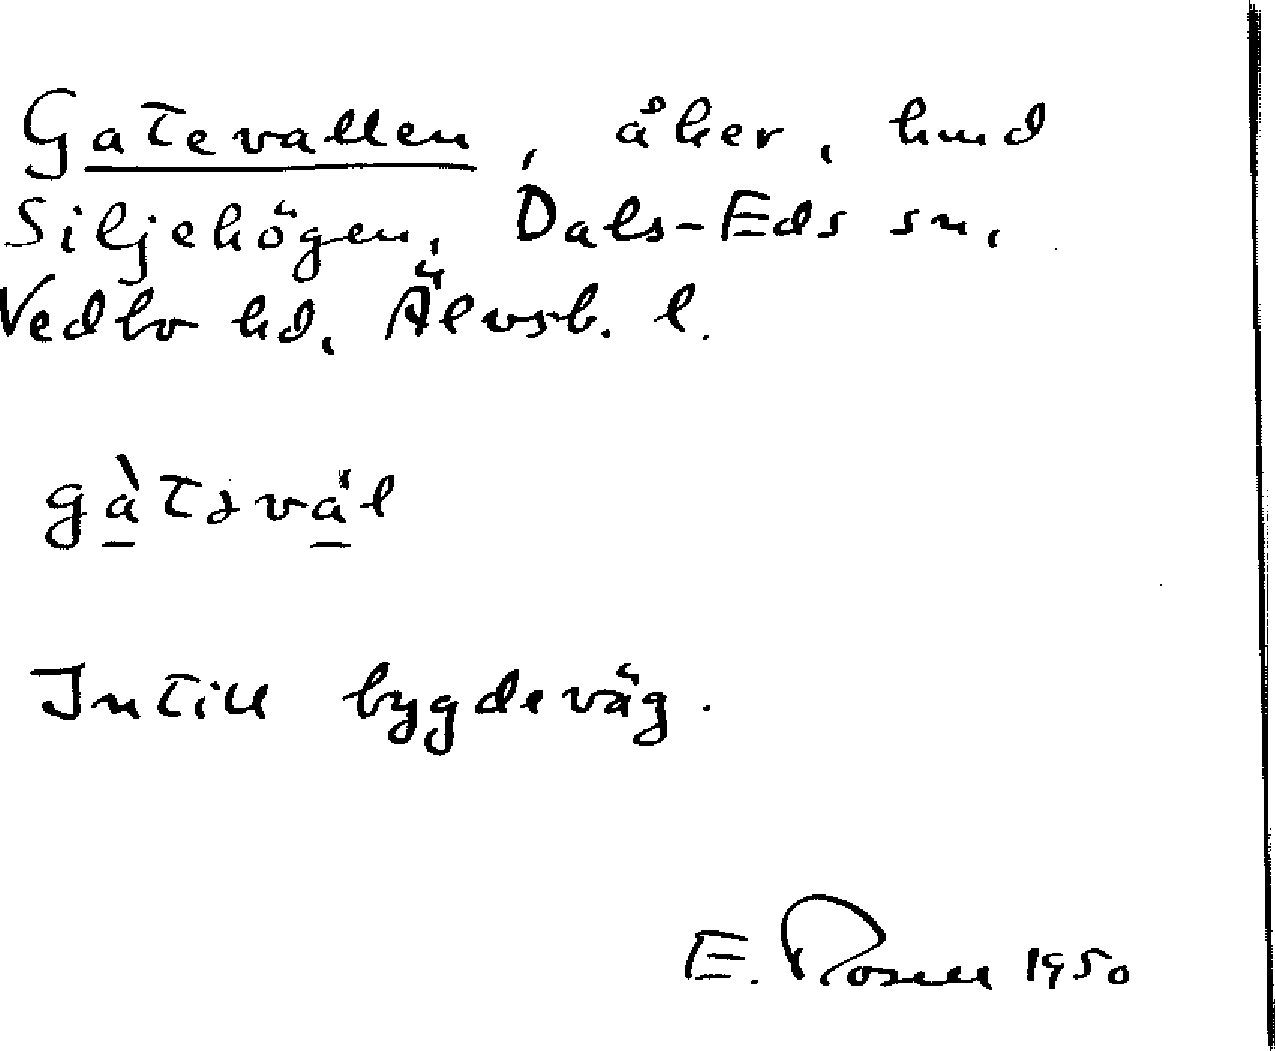 Gatevallen, åker, hmd
Siljehögen, Dals-Eds sn,
Vedbo hd, Älvsb. l.
gàtəvál
Intill bygdeväg.
E. Rosell 1950